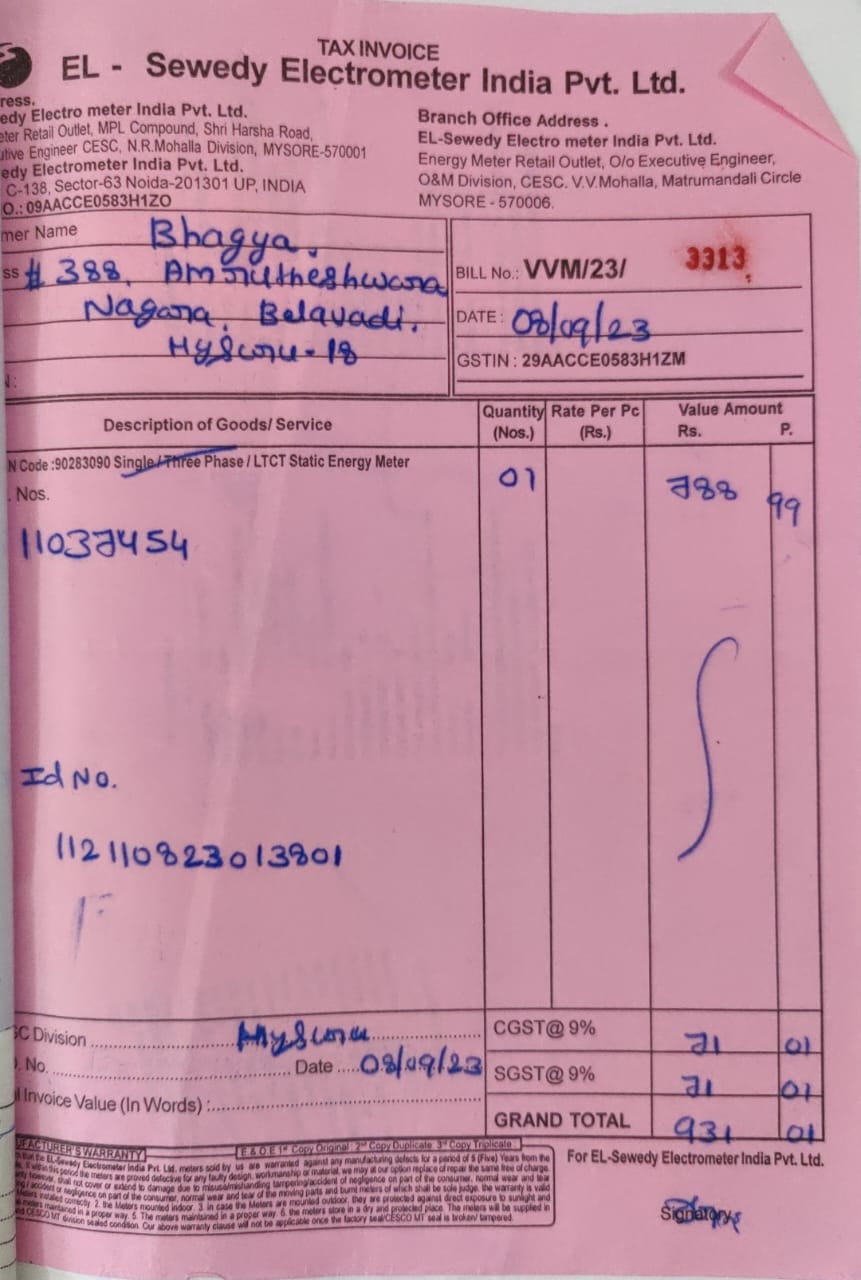 TAX INVOICE
EL - Sewedy Electrometer India Pvt. Ltd.
ress.
edy Electro meter India Pvt. Ltd.
eter Retail Outlet, MPL Compound, Shri Harsha Road,
utive Engineer CESC, N.R.Mohalla Division, MYSORE-570001
edy Electrometer India Pvt. Ltd.
C-138, Sector-63 Noida-201301 UP, INDIA
O.: 09AACCE0583H1ZO
Branch Office Address .
EL-Sewedy Electro meter India Pvt. Ltd.
Energy Meter Retail Outlet, O/o Executive Engineer,
O&M Division, CESC. V.V.Mohalla, Matrumandali Circle
MYSORE - 570006.
mer Name Bhagya.
ss # 388, Amrutheshwara
Nagara, Belavadi,
Mysuru-18
BILL No.: VVM/23/ 3313
DATE : 08/09/23
GSTIN : 29AACCE0583H1ZM
Description of Goods/ Service Quantity (Nos.) Rate Per Pc (Rs.) Value Amount Rs. P.
N Code :90283090 Single / Three Phase / LTCT Static Energy Meter
. Nos. 01 788 99
11037454
Id No.
112110823013801
SC Division Mysuru CGST@ 9% 71 01
. No. Date 08/09/23 SGST@ 9% 71 01
l Invoice Value (In Words) : GRAND TOTAL 931 01
UFACTURER'S WARRANTY E & O E 1st Copy Original 2nd Copy Duplicate 3rd Copy Triplicate
For EL-Sewedy Electrometer India Pvt. Ltd.
Signatory